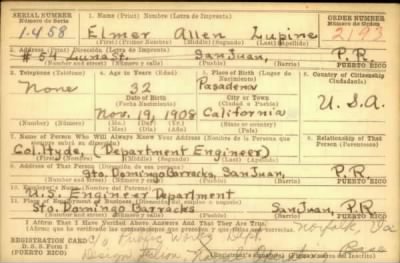 SERIAL NUMBER
Número de Serie
1. Name (Print) Nombre (Letra de Imprenta)
ORDER NUMBER
Número de Orden
1458
Elmer Allen Lupine
2193
(First) (Primer Nombre) (Middle) (Segundo) (Last) (Apellido)
2. Address (Print) Dirección (Letra de Imprenta)
#54 Luna St. San Juan, P.R.
(Number and street) (Número y calle) (Town) (Pueblo) PUERTO RICO
3. Telephone (Teléfono)
4. Age in Years (Edad)
5. Place of Birth (Lugar de Nacimiento)
6. Country of Citizenship
Ciudadanía
None
32
Pasadena
Date of Birth
(Fecha Nacimiento)
City or Town
(Ciudad o Pueblo)
Nov. 19, 1908 California
U.S.A.
(Number) (Número) (Mo.) (Day) (Yr.)
(Mes) (Día) (Año)
7. Name of Person Who Will Always Know Your Address (Nombre de la Persona que siempre sabrá su dirección)
8. Relationship of That Person (Parentesco)
Col. Hyde, (Department Engineer)
9. Address of That Person (Dirección de esa persona)
Sto. Domingo Barracks, San Juan, P.R.
(Number and street) (Número y calle) (Town) (Pueblo) PUERTO RICO
10. Employer's Name (Nombre del Patrono)
U.S. Engineer Department
11. Place of Employment or Business (Lugar de Empleo o Negocio)
Sto. Domingo Barracks San Juan, P.R.
(Number and street) (Número y calle) (Town) (Pueblo) PUERTO RICO
I Affirm That I Have Verified Above Answers And That They Are True.
Norfolk, Va
REGISTRATION CARD
D. S. S. Form 1
(PUERTO RICO)
c/o Public Works Dept
Design Section, Naval Base